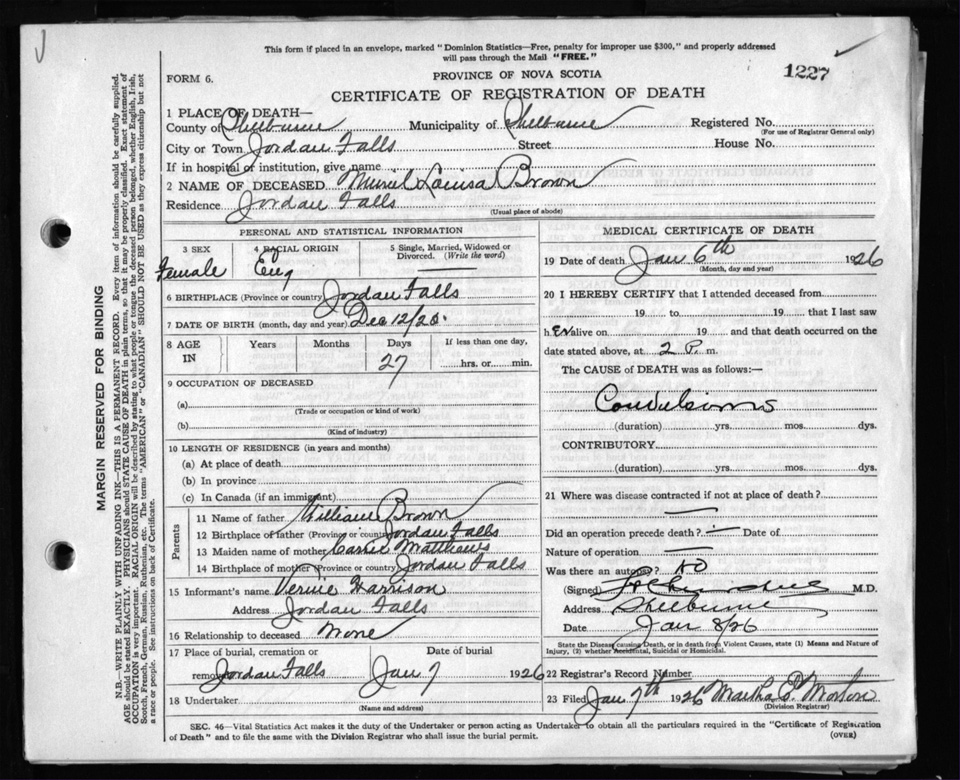 This form if placed in an envelope, marked "Dominion Statistics—Free, penalty for improper use $300," and properly addressed
will pass through the Mail "FREE."
1227
FORM 6.
PROVINCE OF NOVA SCOTIA
CERTIFICATE OF REGISTRATION OF DEATH
1 PLACE OF DEATH—
County of Shelburne Municipality of Shelburne Registered No.
(For use of Registrar General only)
City or Town Jordan Falls Street House No.
If in hospital or institution, give name
2 NAME OF DECEASED Muriel Louisa Brown
Residence Jordan Falls
(Usual place of abode)
PERSONAL AND STATISTICAL INFORMATION
3 SEX 4 RACIAL ORIGIN 5 Single, Married, Widowed or
Divorced. (Write the word)
Female Eng
6 BIRTHPLACE (Province or country) Jordan Falls
7 DATE OF BIRTH (month, day and year) Dec 12/25.
8 AGE IN Years Months Days If less than one day,
27 hrs. or min.
9 OCCUPATION OF DECEASED
(a)
(Trade or occupation or kind of work)
(b)
(Kind of industry)
10 LENGTH OF RESIDENCE (in years and months)
(a) At place of death
(b) In province
(c) In Canada (if an immigrant)
Parents
11 Name of father William Brown
12 Birthplace of father (Province or country) Jordan Falls
13 Maiden name of mother Carrie Matthews
14 Birthplace of mother (Province or country) Jordan Falls
15 Informant's name Vernie Harrison
Address Jordan Falls
16 Relationship to deceased None
17 Place of burial, cremation or Date of burial
removal Jordan Falls Jan 7 1926
18 Undertaker
(Name and address)
MEDICAL CERTIFICATE OF DEATH
19 Date of death Jan 6th 1926
(Month, day and year)
20 I HEREBY CERTIFY that I attended deceased from
19 to 19 that I last saw
h er alive on 19 and that death occurred on the
date stated above, at 2 P. m.
The CAUSE of DEATH was as follows:—
Convulsions
(duration) yrs. mos. dys.
CONTRIBUTORY
(duration) yrs. mos. dys.
21 Where was disease contracted if not at place of death?
Did an operation precede death? Date of
Nature of operation
Was there an autopsy? no
(Signed) M.D.
Address Shelburne
Date Jan 8/26
State the Disease causing Death, or in death from Violent Causes, state (1) Means and Nature of
Injury, (2) whether Accidental, Suicidal or Homicidal.
22 Registrar's Record Number
23 Filed Jan 7th 1926 Martha P Morton
(Division Registrar)
SEC. 46—Vital Statistics Act makes it the duty of the Undertaker or person acting as Undertaker to obtain all the particulars required in the "Certificate of Registration
of Death" and to file the same with the Division Registrar who shall issue the burial permit. (OVER)
MARGIN RESERVED FOR BINDING
N.B.—WRITE PLAINLY WITH UNFADING INK—THIS IS A PERMANENT RECORD. Every item of information should be carefully supplied.
AGE should be stated EXACTLY. PHYSICIANS should STATE CAUSE OF DEATH in plain terms, so that it may be properly classified. Exact statement of
OCCUPATION is very important. RACIAL ORIGIN will be described by stating to what people or tongue the deceased person belonged, whether English, Irish,
Scotch, French, German, Russian, Ruthenian, etc. The terms "AMERICAN" or "CANADIAN" SHOULD NOT BE USED as they express citizenship but not
a race or people. See instructions on back of Certificate.